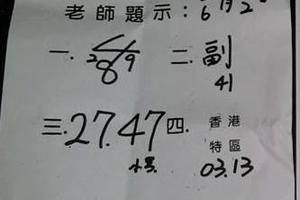 老師題示:6月2
一. 2 6/8 9 二.副
41
三.27.47 四.香港
特區
03.13